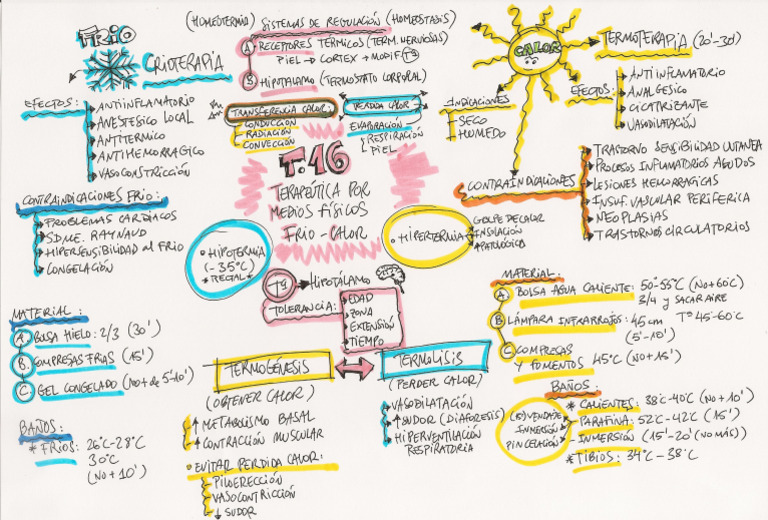 FRIO
CRIOTERAPÍA
EFECTOS:
ANTIINFLAMATORIO
ANESTESICO LOCAL
ANTITERMICO
ANTIHEMORRAGICO
VASOCONSTRICCIÓN
CONTRAINDICACIONES FRIO:
PROBLEMAS CARDÍACOS
SDME. RAYNAUD
HIPERSENSIBILIDAD al FRIO
CONGELACIÓN
MATERIAL:
A BOLSA HIELO: 2/3 (30')
B. COMPRESAS FRÍAS (15')
C GEL CONGELADO (No + de 5'-10')
BAÑOS:
* FRÍOS: 26ºC-28ºC
30ºC
(No + 10')
(HOMEOTERMIA) SISTEMAS DE REGULACIÓN (HOMEOSTASIS)
A RECEPTORES TÉRMICOS (TERM. NERVIOSAS)
PIEL → CORTEX → MODIF. Tª
B HIPOTALAMO (TERMOSTATO CORPORAL)
TRANSFERENCIA CALOR:
CONDUCCIÓN
RADIACIÓN
CONVECCIÓN
PERDIDA CALOR
EVAPORACIÓN
RESPIRACIÓN
PIEL
T.16
TERAPÉUTICA POR
MEDIOS FÍSICOS
FRIO - CALOR
HIPOTERMIA
(-35ºC)
* RECTAL *
HIPERTERMIA
GOLPE DE CALOR
INSOLACIÓN
PATOLÓGICA
Tª → HIPOTÁLAMO
TOLERANCIA:
EDAD
ZONA
EXTENSIÓN
TIEMPO
TERMOGÉNESIS
(OBTENER CALOR)
↑ METABOLISMO BASAL
↑ CONTRACCIÓN MUSCULAR
EVITAR PERDIDA CALOR:
PILOERECCIÓN
VASOCONTRICCIÓN
↓ SUDOR
TERMOLISIS
(PERDER CALOR)
VASODILATACIÓN
↑ SUDOR (DIAFORESIS)
HIPERVENTILACIÓN
RESPIRATORIA
CALOR
TERMOTERAPIA (20'-30')
EFECTOS:
ANTIINFLAMATORIO
ANALGESICO
CICATRIZANTE
VASODILATACIÓN
INDICACIONES
SECO
HUMEDO
CONTRAINDICACIONES
TRASTORNO SENSIBILIDAD CUTANEA
PROCESOS INFLAMATORIOS AGUDOS
LESIONES HEMORRAGICAS
INSUF. VASCULAR PERIFERICA
NEOPLASIAS
TRASTORNOS CIRCULATORIOS
MATERIAL:
A BOLSA AGUA CALIENTE: 50º-55ºC (No + 60ºC)
3/4 y SACAR AIRE
B LÁMPARA INFRARROJOS: 45 cm Tª 45º-60ºC
(5'-10')
C COMPRESAS
Y FOMENTOS 45ºC (No + 15')
BAÑOS:
* CALIENTES: 38ºC-40ºC (No + 10')
PARAFINA: 52ºC-42ºC (15')
VENDAJE
INMERSIÓN
PINCELACIÓN
INMERSIÓN (15'-20' (No MÁS))
* TIBIOS: 34ºC-38ºC